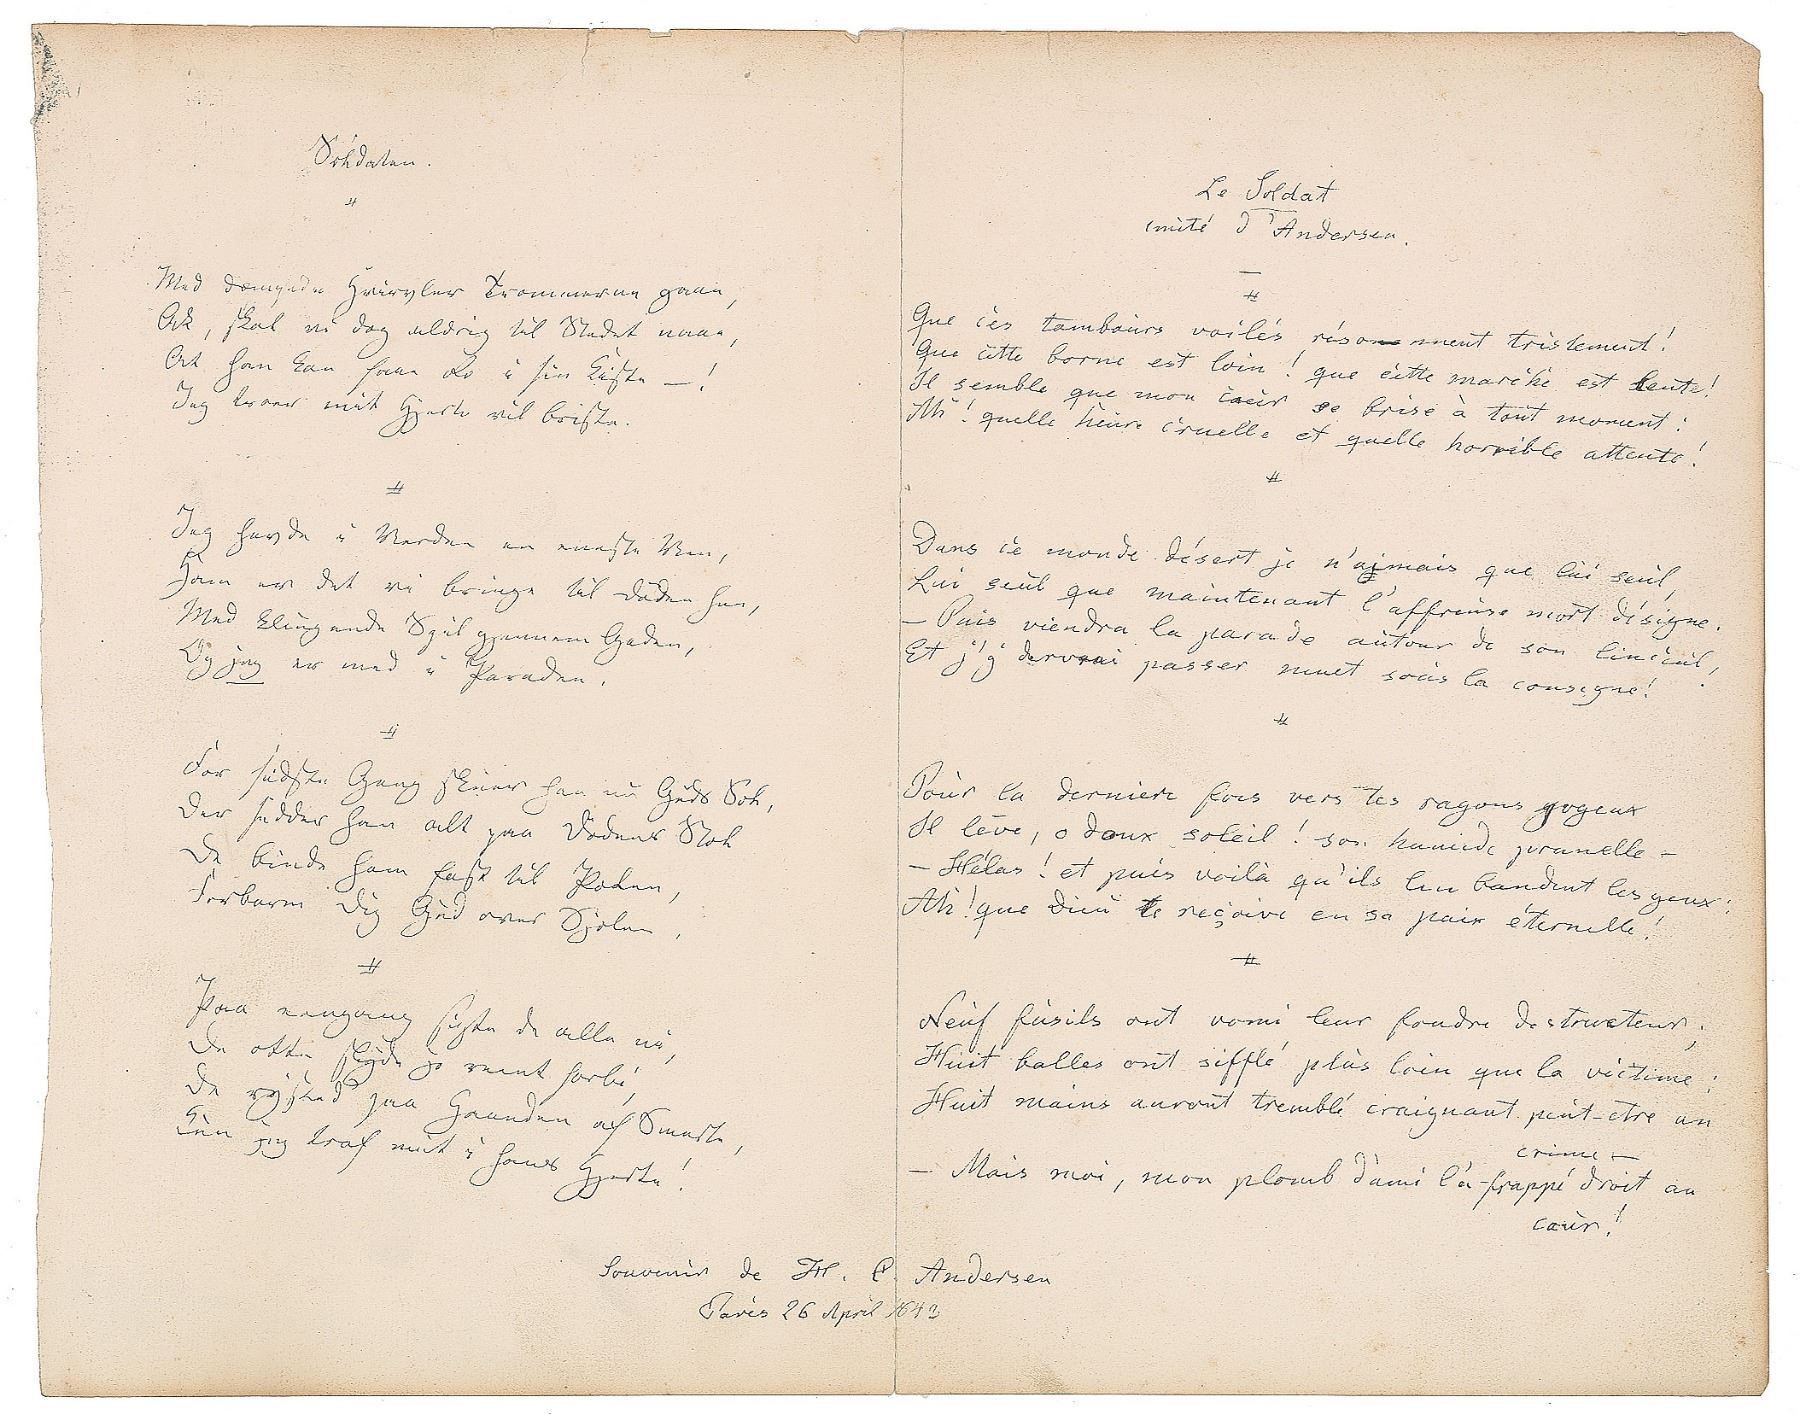 Soldaten.
Med dæmpede Hvirvler Trommerne gaae,
Ak, skal vi dog aldrig til Stedet naae,
At han kan faae Ro i sin Kiste — !
Jeg troer mit Hjerte vil briste.
Jeg havde i Verden en eneste Ven,
Ham er det vi bringe til Døden hen,
Med klingende Spil gjennem Gaden,
Og jeg er med i Paraden.
For sidste Gang skuer han nu Guds Sol,
Der sidder han alt paa Dødens Stol
De binde ham fast til Pælen,
Forbarm Dig Gud over Sjælen.
Paa eengang sigte de alle ni,
De otte skyde jo reent forbi,
De rysted paa Haanden af Smerte,
Kun jeg traf midt i hans Hjerte!
Le Soldat
imité d'Andersen.
Que ces tambours voilés résonnent tristement!
Que cette borne est loin! que cette marche est lente!
Il semble que mon cœur se brise à tout moment:
Ah! quelle heure cruelle et quelle horrible attente!
Dans ce monde désert je n'aimais que lui seul,
Lui seul que maintenant l'affreuse mort désigne.
— Puis viendra la parade autour de son linceul!
Et j'y devrai passer muet sous la consigne!
Pour la derniere fois vers tes rayons joyeux
Il léve, o doux soleil! son humide prunelle —
— Hélas! et puis voilà qu'ils lui bandent les yeux:
Ah! que Dieu te reçoive en sa paix éternelle!
Neuf fusils ont vomi leur foudre destructeur;
Huit balles ont sifflé plus loin que la victime;
Huit mains auront tremblé craignant peut-etre un
crime —
— Mais moi, mon plomb d'ami l'a frappé droit au
cœur!
Souvenir de H. C. Andersen
Paris 26 April 1843